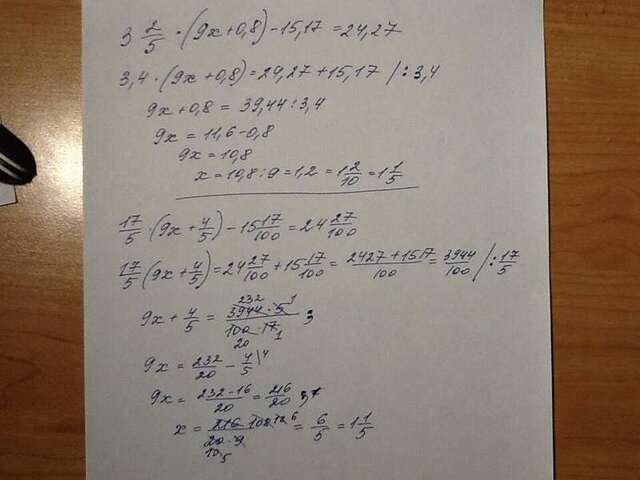 3 2/5 · (9x+0,8) - 15,17 = 24,27
3,4 · (9x+0,8) = 24,27 + 15,17 | : 3,4
9x + 0,8 = 39,44 : 3,4
9x = 11,6 - 0,8
9x = 10,8
x = 10,8 : 9 = 1,2 = 1 2/10 = 1 1/5
17/5 · (9x + 4/5) - 15 17/100 = 24 27/100
17/5 (9x + 4/5) = 24 27/100 + 15 17/100 = 2427 + 1517/100 = 3944/100 | : 17/5
9x + 4/5 = 232 3944 · 5 1/100 · 17 20 1
9x = 232/20 - 4/5 \4
9x = 232 - 16/20 = 216/20
x = 216/20 · 9 10 5 = 6/5 = 1 1/5